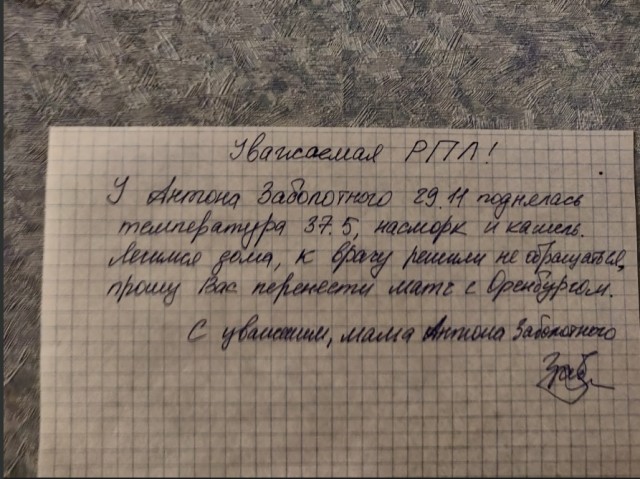 Уважаемая РПЛ!
У Антона Заболотного 29.11 поднялась
температура 37.5, насморк и кашель.
Лечимся дома, к врачу решили не обращаться,
прошу Вас перенести матч с Оренбургом.
С уважением, мама Антона Заболотного
Заб